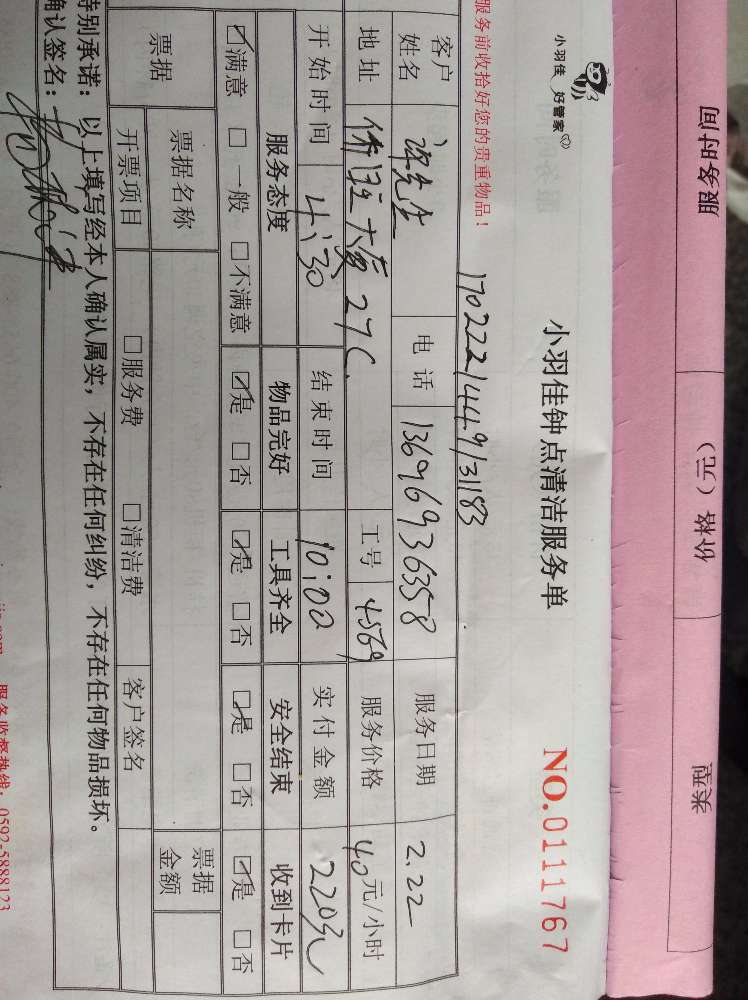 服务时间
价格（元）
类型
小羽佳 好管家
小羽佳钟点清洁服务单
NO.0111767
服务前收拾好您的贵重物品！
170222144913183
客户姓名 许先生 电话 13696936358 服务日期 2.22
地址 侨班大厦27C. 工号 4569 服务价格 40元/小时
开始时间 4:30 结束时间 10:00 实付金额 220元
服务态度 物品完好 工具齐全 安全结束 收到卡片
☑满意 □一般 □不满意 ☑是 □否 ☑是 □否 ☑是 □否 ☑是 □否
票据 票据名称 票据金额
开票项目 □服务费 □清洁费 客户签名
特别承诺：以上填写经本人确认属实，不存在任何纠纷，不存在任何物品损坏。
确认签名：
服务监督热线：0592-5888123